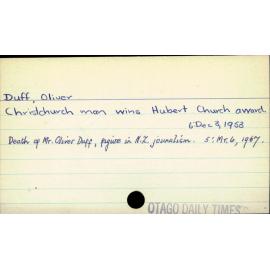 Duff, Oliver
Christchurch man wins Hubert Church award
6: Dec 3, 1953
Death of Mr. Oliver Duff, figure in N.Z. journalism. 5: Mr. 6, 1967
OTAGO DAILY TIMES